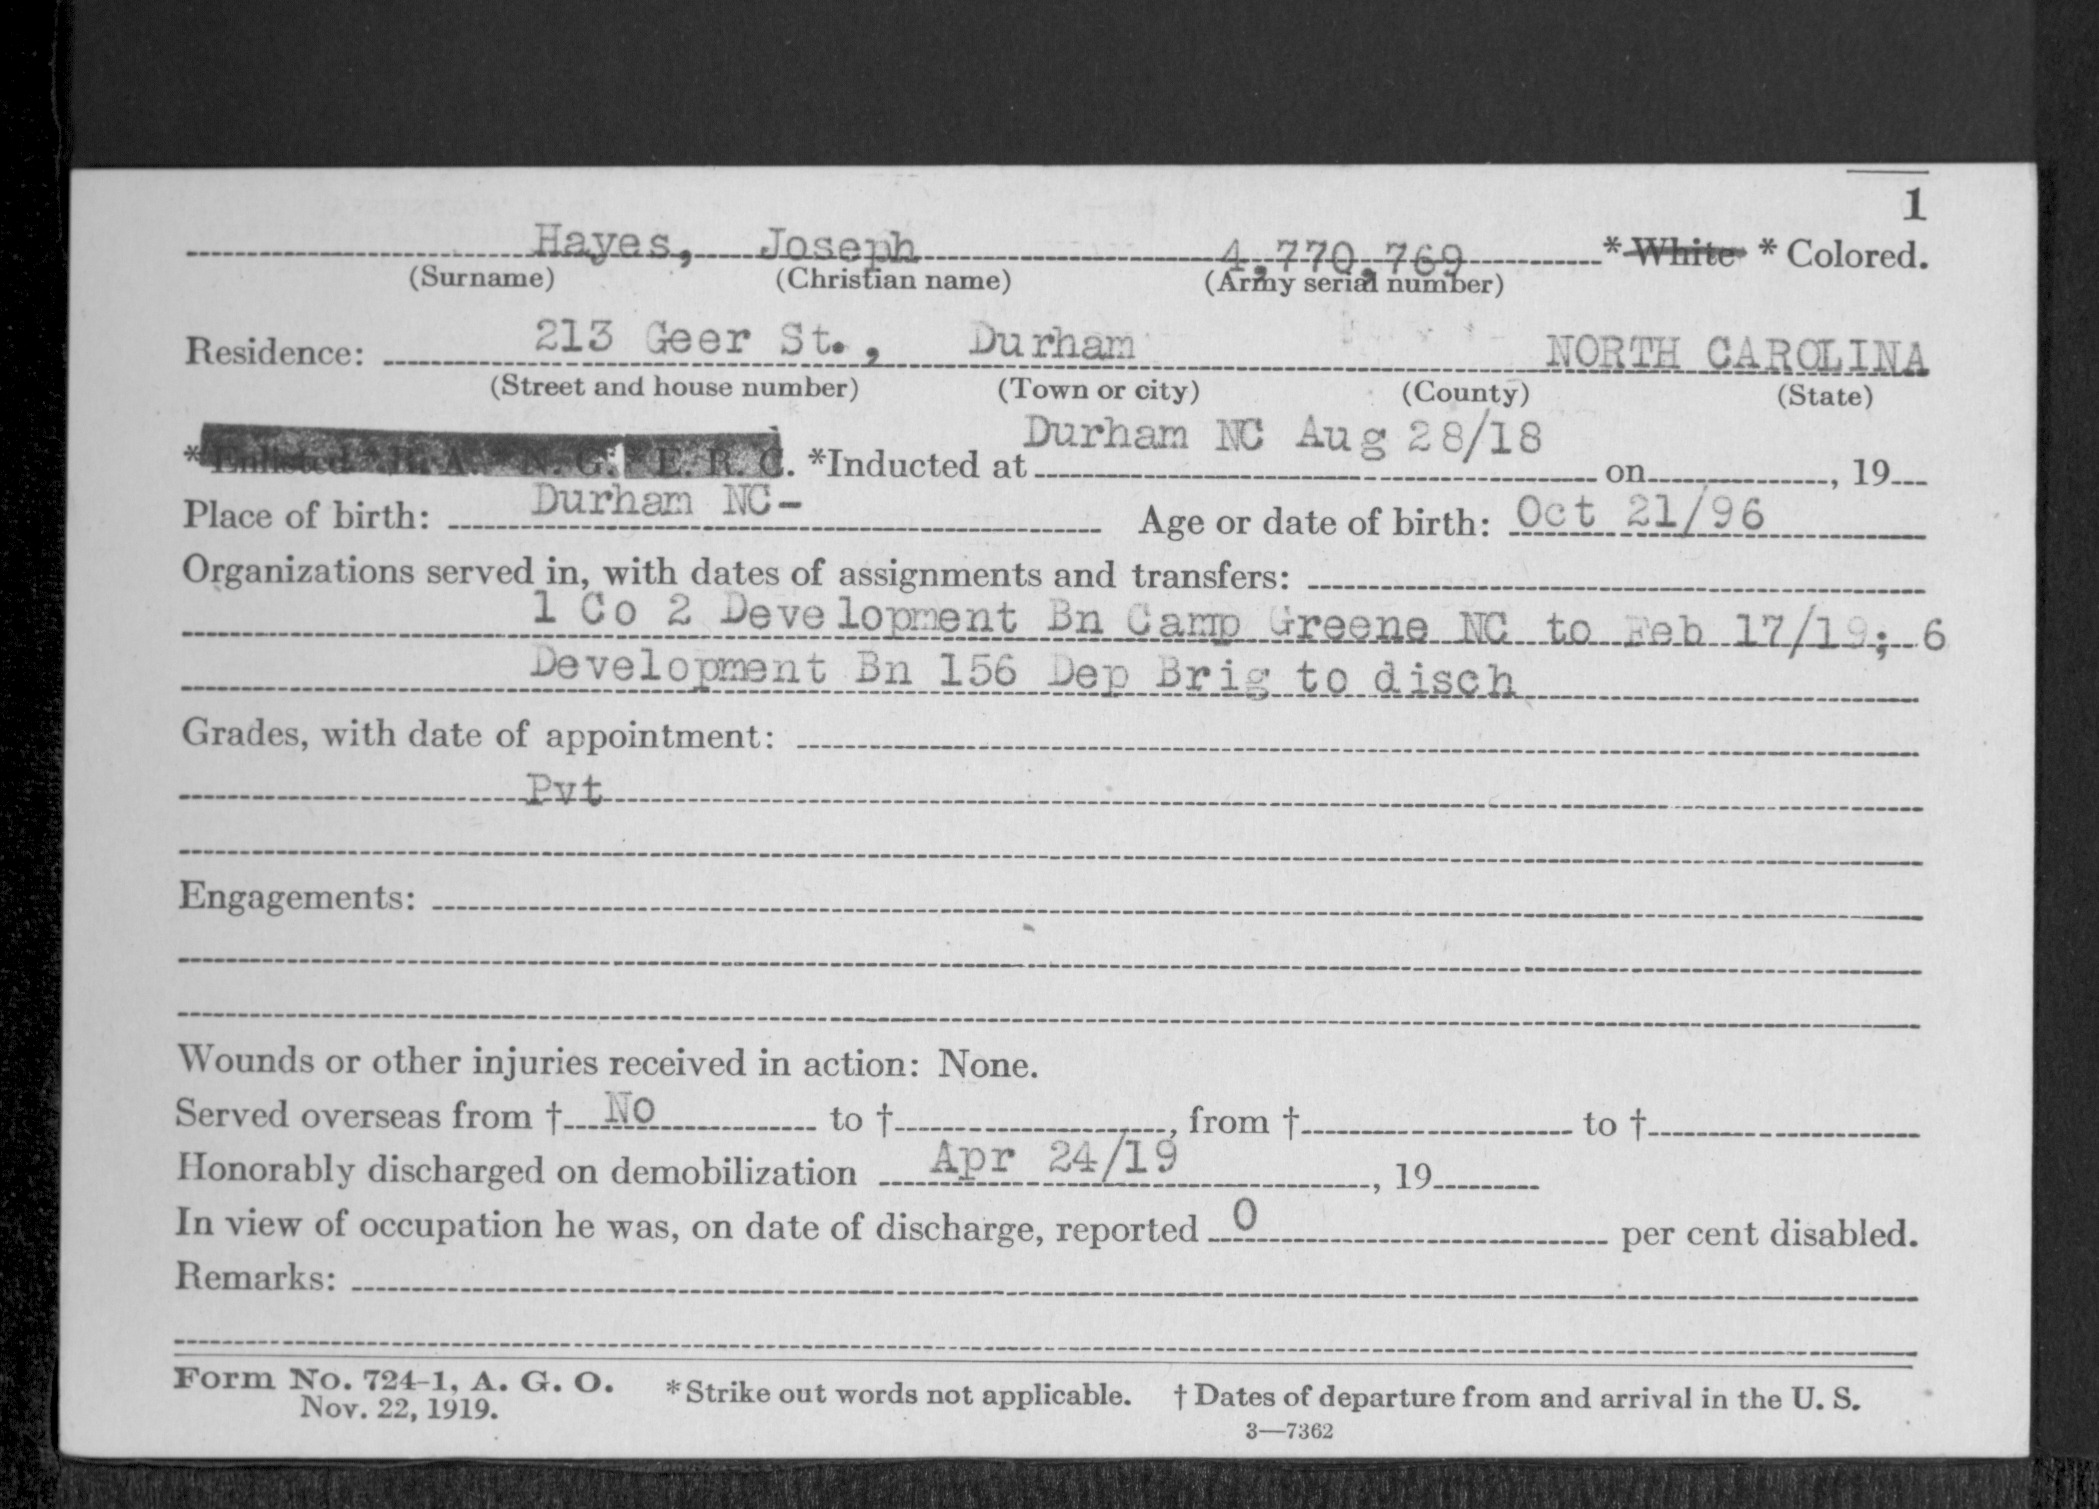 1
Hayes, Joseph 4,770,769 * White * Colored.
(Surname) (Christian name) (Army serial number)
Residence: 213 Geer St., Durham NORTH CAROLINA
(Street and house number) (Town or city) (County) (State)
Durham NC Aug 28/18
*Enlisted *R. A. *N. G. *E. R. C. *Inducted at on , 19
Place of birth: Durham NC- Age or date of birth: Oct 21/96
Organizations served in, with dates of assignments and transfers:
1 Co 2 Development Bn Camp Greene NC to Feb 17/19; 6
Development Bn 156 Dep Brig to disch
Grades, with date of appointment:
Pvt
Engagements:
Wounds or other injuries received in action: None.
Served overseas from † No to † , from † to †
Honorably discharged on demobilization Apr 24/19 , 19
In view of occupation he was, on date of discharge, reported 0 per cent disabled.
Remarks:
Form No. 724-1, A. G. O. *Strike out words not applicable. † Dates of departure from and arrival in the U. S.
Nov. 22, 1919.
3—7362